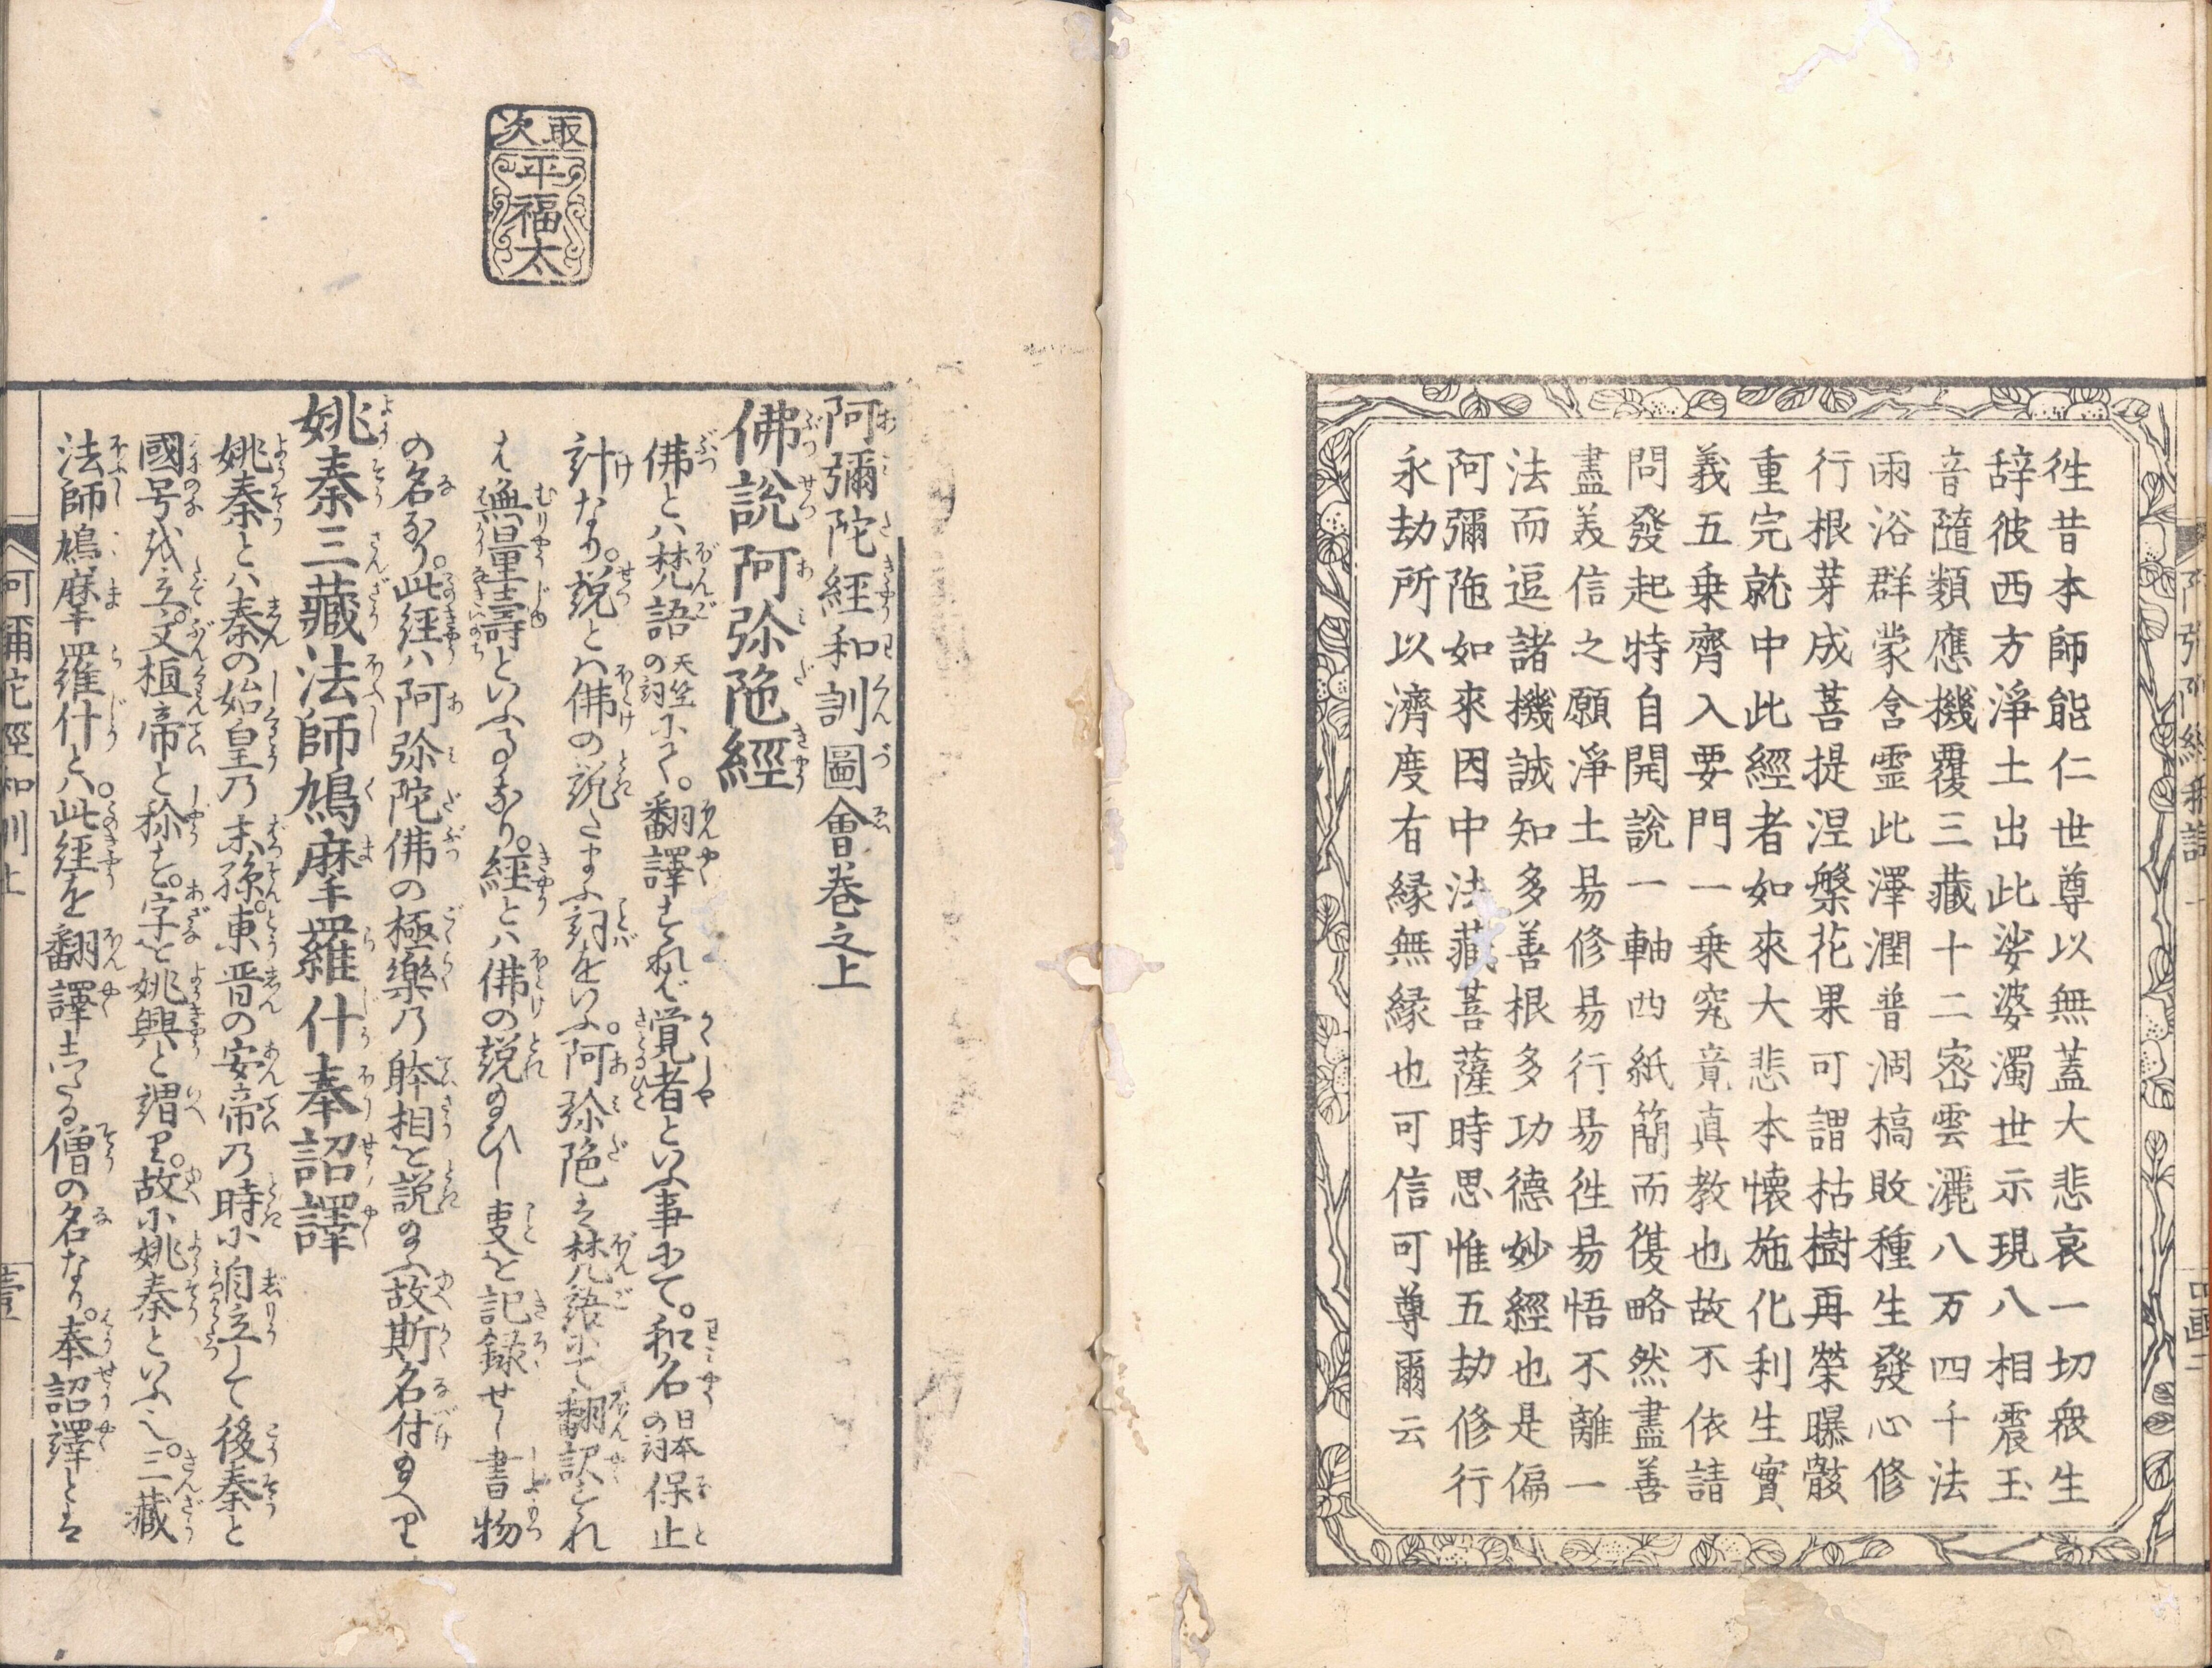 徃昔本師能仁世尊以無蓋大悲哀一切衆生
辞彼西方淨土出此娑婆濁世示現八相震玉
音隨類應機覆三藏十二密雲灑八万四千法
雨浴群蒙含霊此澤潤普涸槁敗種生發心修
行根芽成菩提涅槃花果可謂枯樹再榮曝骸
重完就中此經者如來大悲本懐施化利生實
義五乗齊入要門一乗究竟真教也故不依請
問發起特自開說一軸四紙簡而復略然盡善
盡美信之願淨土易修易行易徃易悟不離一
法而逗諸機誠知多善根多功德妙經也是偏
阿彌陁如來因中法藏菩薩時思惟五劫修行
永劫所以濟度有縁無縁也可信可尊爾云
取次
平福太
阿彌陀經和訓圖會巻之上
佛說阿弥陁經
佛とハ梵語天竺の詞にて。翻譯すれバ覚者といふ事にて。和名日本の詞保止
計なり。説とハ佛の説たまふ詞をいふ。阿弥陁ハ梵語にて翻訳すれ
ば無量壽といふ事なり。経とハ佛の説給ひし事を記録せし書物
の名なり。此経ハ阿弥陀佛の極樂乃躰相を説給ふ故斯名付給へり
姚秦三藏法師鳩摩羅什奉詔譯
姚秦とハ秦の始皇乃末孫。東晋の安帝乃時に自立して後秦と
國号を立。文桓帝と称す。字を姚興と謂り。故に姚秦といふ也。三藏
法師鳩摩羅什とハ。此経を翻譯したる僧の名なり。奉詔譯とは
阿彌陀經和訓上
壹